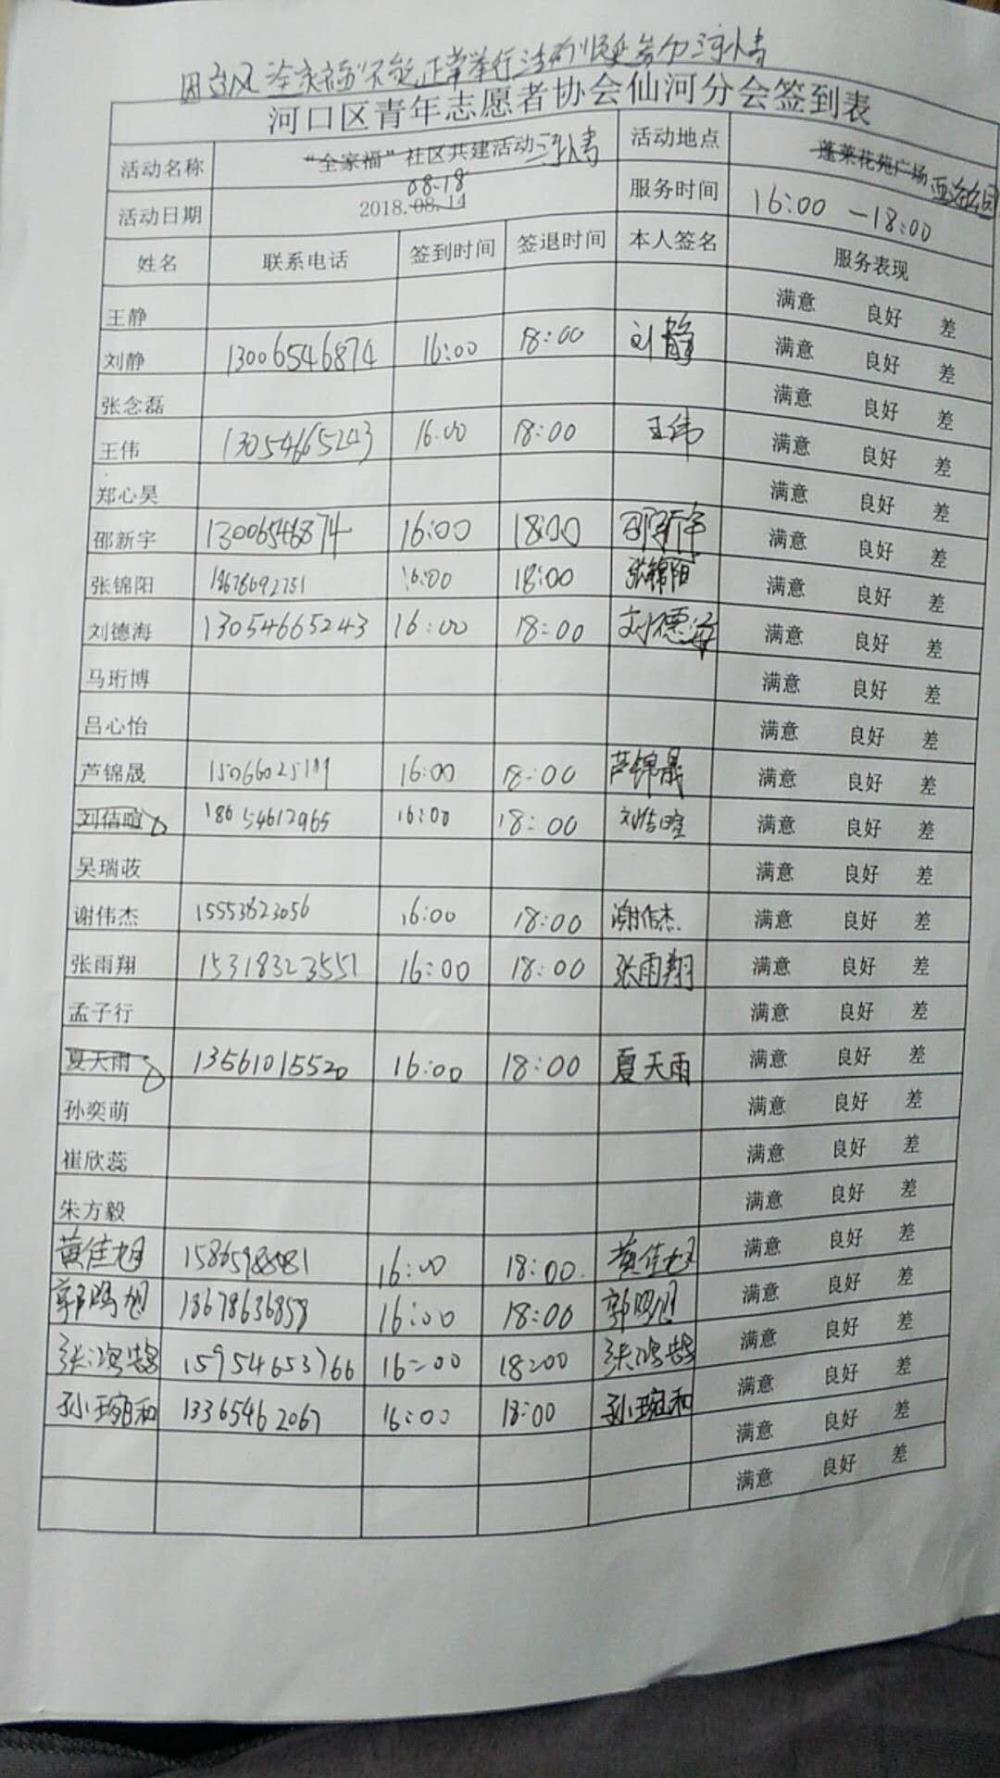 因台风"全家福"不能正常举行
河口区青年志愿者协会仙河分会签到表
活动名称 "全家福"社区共建活动 活动地点 蓬莱花苑广场
08.18
活动日期 2018.08.14 服务时间 16:00 —18:00
姓名 联系电话 签到时间 签退时间 本人签名 服务表现
王静 满意 良好 差
刘静 13006546874 16:00 18:00 刘静 满意 良好 差
张念磊 满意 良好 差
王伟 13054665243 16:00 18:00 王伟 满意 良好 差
郑心昊 满意 良好 差
邵新宇 13006546874 16:00 18:00 邵新宇 满意 良好 差
张锦阳 16:00 18:00 张锦阳 满意 良好 差
刘德海 13054665243 16:00 18:00 刘德海 满意 良好 差
马珩博 满意 良好 差
吕心怡 满意 良好 差
芦锦晟 16:00 18:00 芦锦晟 满意 良好 差
刘佶暄 18654612965 16:00 18:00 刘佶暄 满意 良好 差
吴瑞荍 满意 良好 差
谢伟杰 15553823056 16:00 18:00 谢伟杰 满意 良好 差
张雨翔 15318323551 16:00 18:00 张雨翔 满意 良好 差
孟子行 满意 良好 差
夏天雨 13561015520 16:00 18:00 夏天雨 满意 良好 差
孙奕萌 满意 良好 差
崔欣蕊 满意 良好 差
朱方毅 满意 良好 差
黄佳旭 16:00 18:00 黄佳旭 满意 良好 差
郭鸣旭 18678636858 16:00 18:00 郭鸣旭 满意 良好 差
张鸿鹄 15954653766 16:00 18:00 张鸿鹄 满意 良好 差
孙琬和 13365462067 16:00 18:00 孙琬和 满意 良好 差
满意 良好 差
满意 良好 差